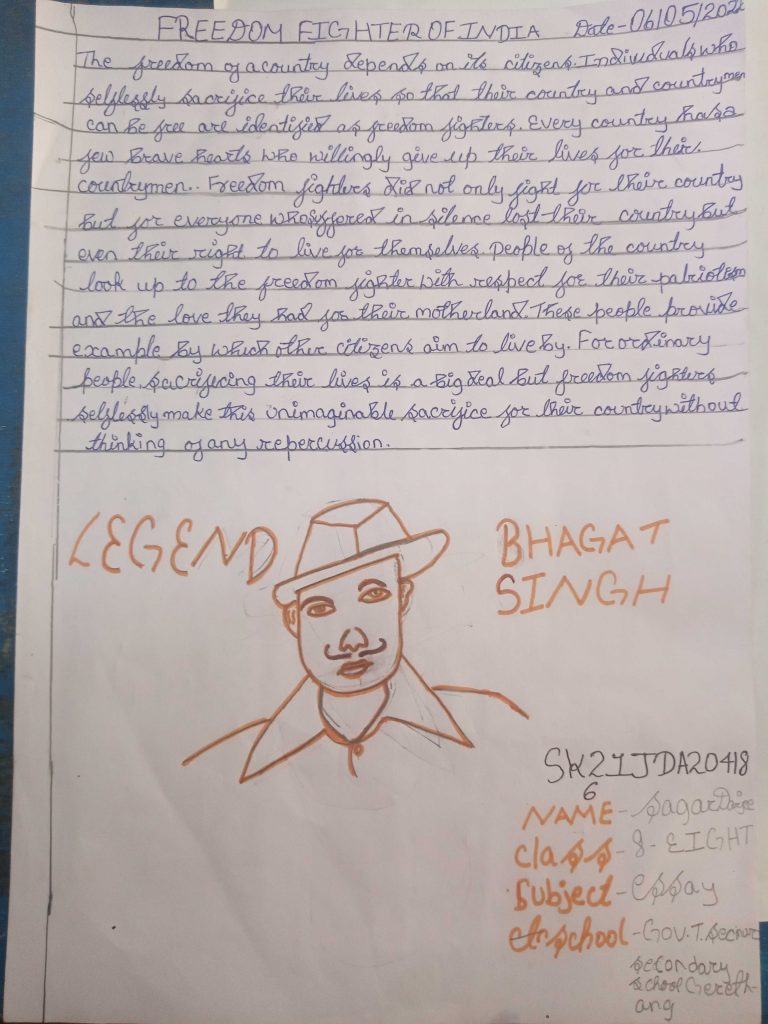 FREEDOM FIGHTER OF INDIA Date-06/05/202
The freedom of a country depends on its citizens. Individuals who
selflessly sacrifice their lives so that their country and countrymen
can be free are identified as freedom fighters. Every country has a
few brave hearts who willingly give up their lives for their
countrymen.. Freedom fighters did not only fight for their country
but for everyone who suffered in silence lost their country but
even their right to live for themselves. people of the country
look up to the freedom fighter with respect for their patriotism
and the love they had for their motherland. These people provide
example by which other citizens aim to live by. For ordinary
people, sacrificing their lives is a big deal but freedom fighters
selflessly make this unimaginable sacrifice for their country without
thinking of any repercussion.
LEGEND BHAGAT
SINGH
SK21JDA20418
6
NAME - Sagar
Class - 8 - EIGHT
Subject - Essay
School - GOV.T.
secondary
school Gereth-
ang